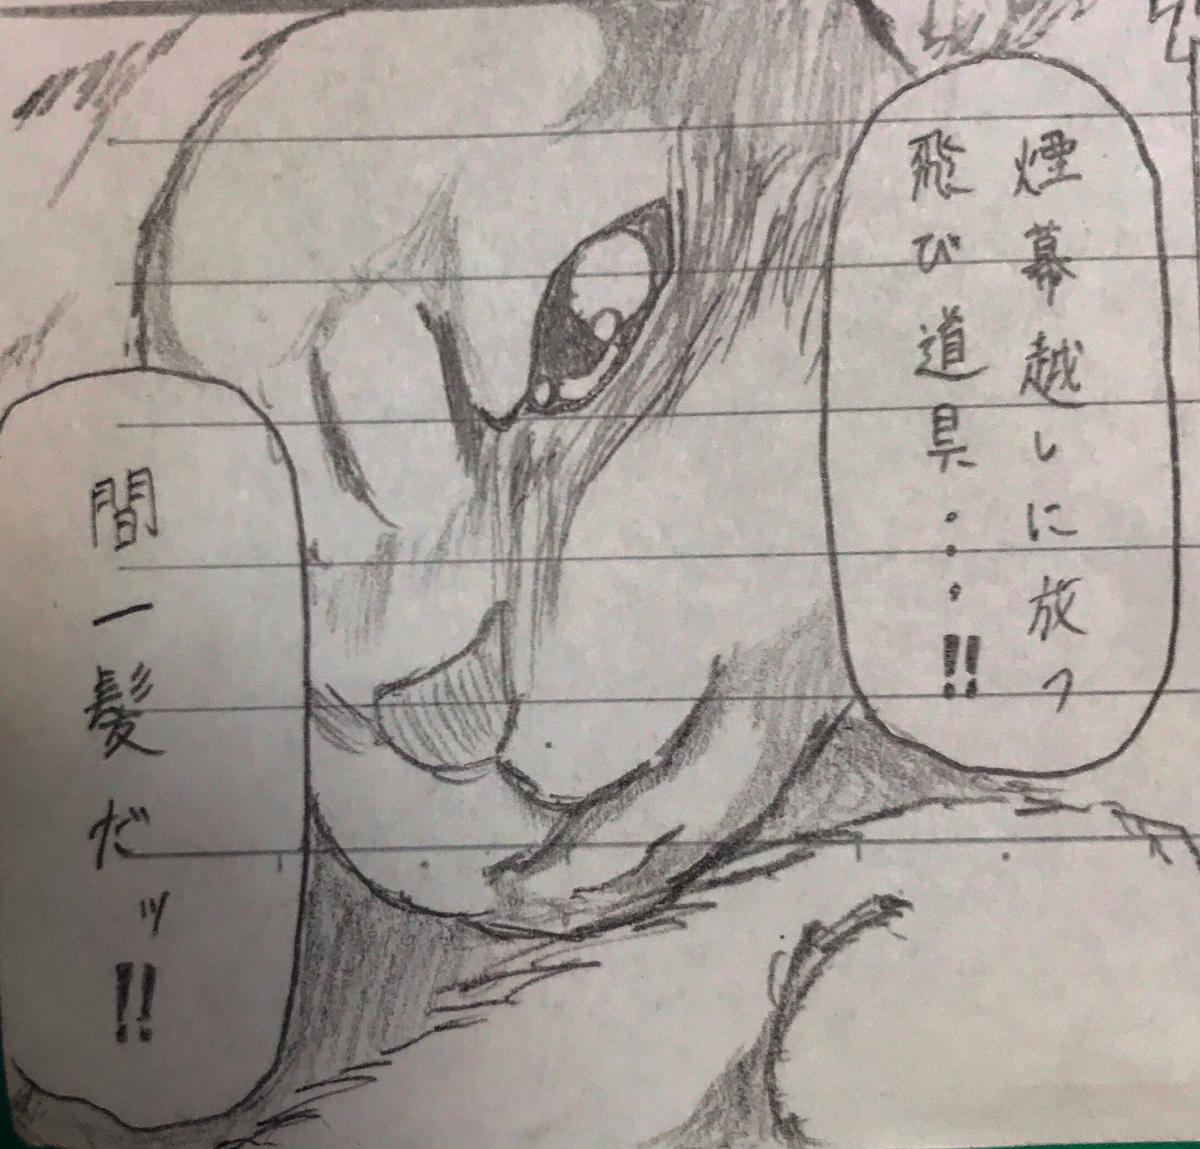 煙幕越しに放つ
飛び道具・・・!!
間一髪だッ!!